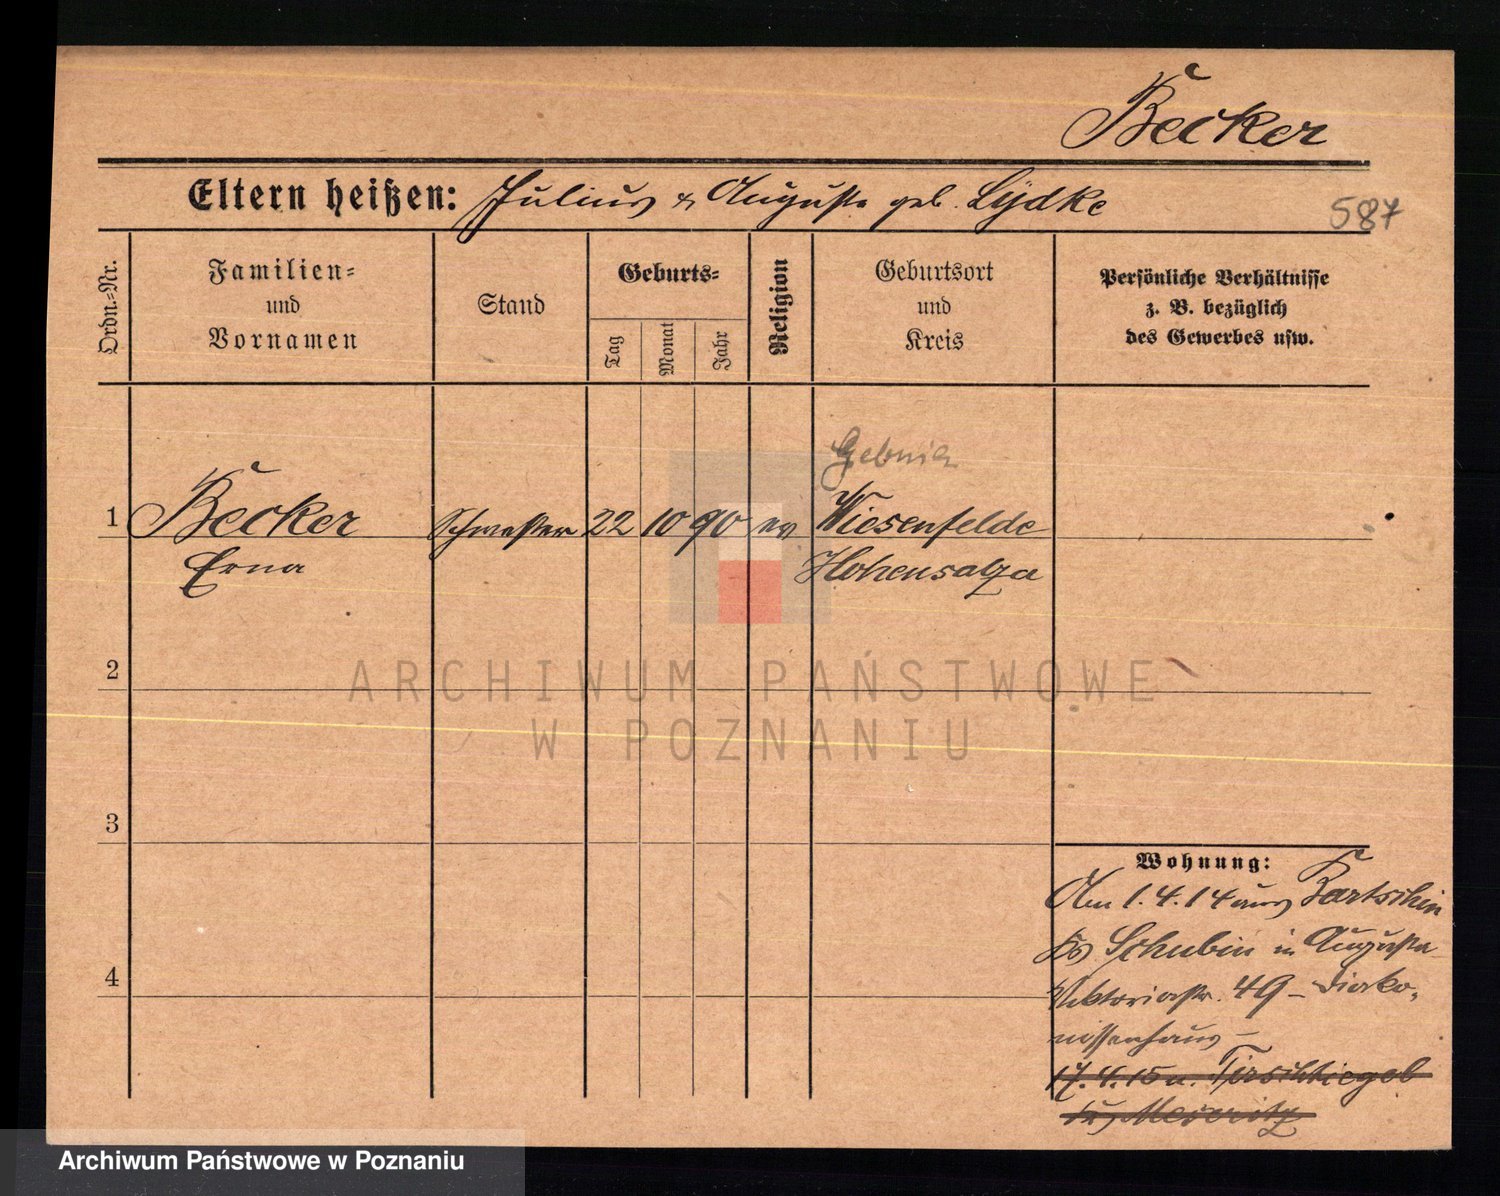 Becker
Eltern heißen: Julius & Auguste geb. Lydke
587
Ordn.-Nr.
Familien-
und
Vornamen
Stand
Geburts-
Tag
Monat
Jahr
Religion
Geburtsort
und
Kreis
Persönliche Verhältnisse
z. B. bezüglich
des Gewerbes usw.
1
Becker
Erna
Schwester
22
10
90
ev
Wiesenfelde
Hohensalza
2
ARCHIWUM PAŃSTWOWE
W POZNANIU
3
4
Wohnung:
Am 1.4.14 aus Bartschin
Krs Schubin in Augusta
Viktoriastr. 49 - Diako-
nissenhaus -
17.4.15 n. Tirschtiegel
Krs Meseritz
Archiwum Państwowe w Poznaniu